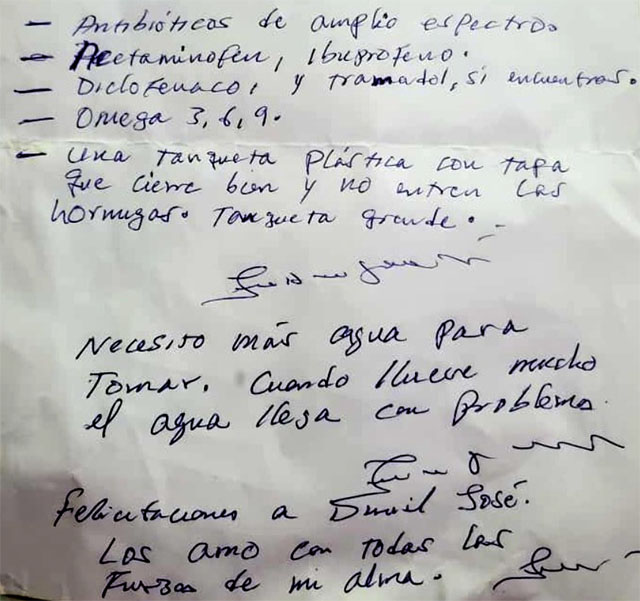 - Antibióticos de amplio espectro.
- Acetaminofén, Ibuprofeno.
- Diclofenaco, y tramadol, si encuentras.
- Omega 3, 6, 9.
- Una tanqueta plástica con tapa
que cierre bien y no entren las
hormigas. Tanqueta grande.
Necesito más agua para
Tomar. Cuando llueve mucho
el agua llega con problema.
Felicitaciones a José.
Los amo con todas las
Fuerzas de mi alma.